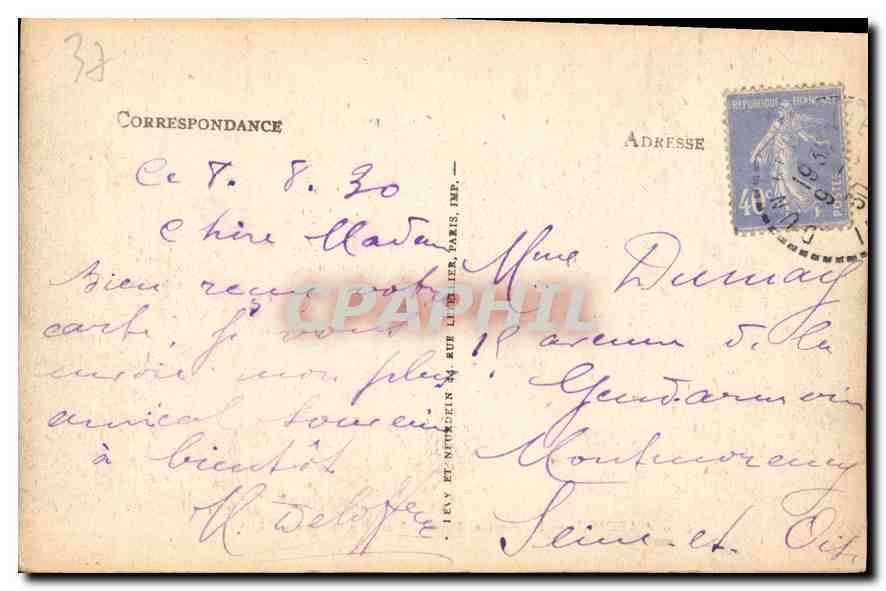 37
CORRESPONDANCE
ADRESSE
REPUBLIQUE FRANCAISE
40c
POSTES
Ce 8. 8. 30
Chère Madame
Bien reçu votre
carte, je vous
envoie mon plus
amical souvenir
à bientôt
LEVY ET NEURDEIN 44, RUE LETELLIER, PARIS, IMP.
Mme Dumay
15 avenue de la
Gendarmerie
Montmorency
Seine-et-Oise
CPAPHIL